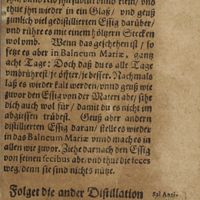 thut jhn wider in ein Glaß / vnd geuß
zimlich viel gedistillierten Essig darüber /
vnd rühre es mit einem höltzern Stecken
wol vmb. Wenn das geschehen ist / so
setz es aber in Balneum Mariæ, gang
acht Tage: Doch daß du es alle Tage
vmbrührest je öffter / je besser. Nachmals
laß es wider kalt werden / vnd geuß wie
zuvor den Essig von der Materi abe / sihe
dich auch wol für / damit du es nicht im
abgiessen trübest. Geuß aber andern
distillierten Essig daran / stelle es wider
in das Balneum Mariæ vnnd mach es in
allen wie zuvor. Ziehe darnach den Essig
von seinen fecibus abe / vnd thue die feces
weg / denn sie sind nichts nütze.
Folget die ander Distillation